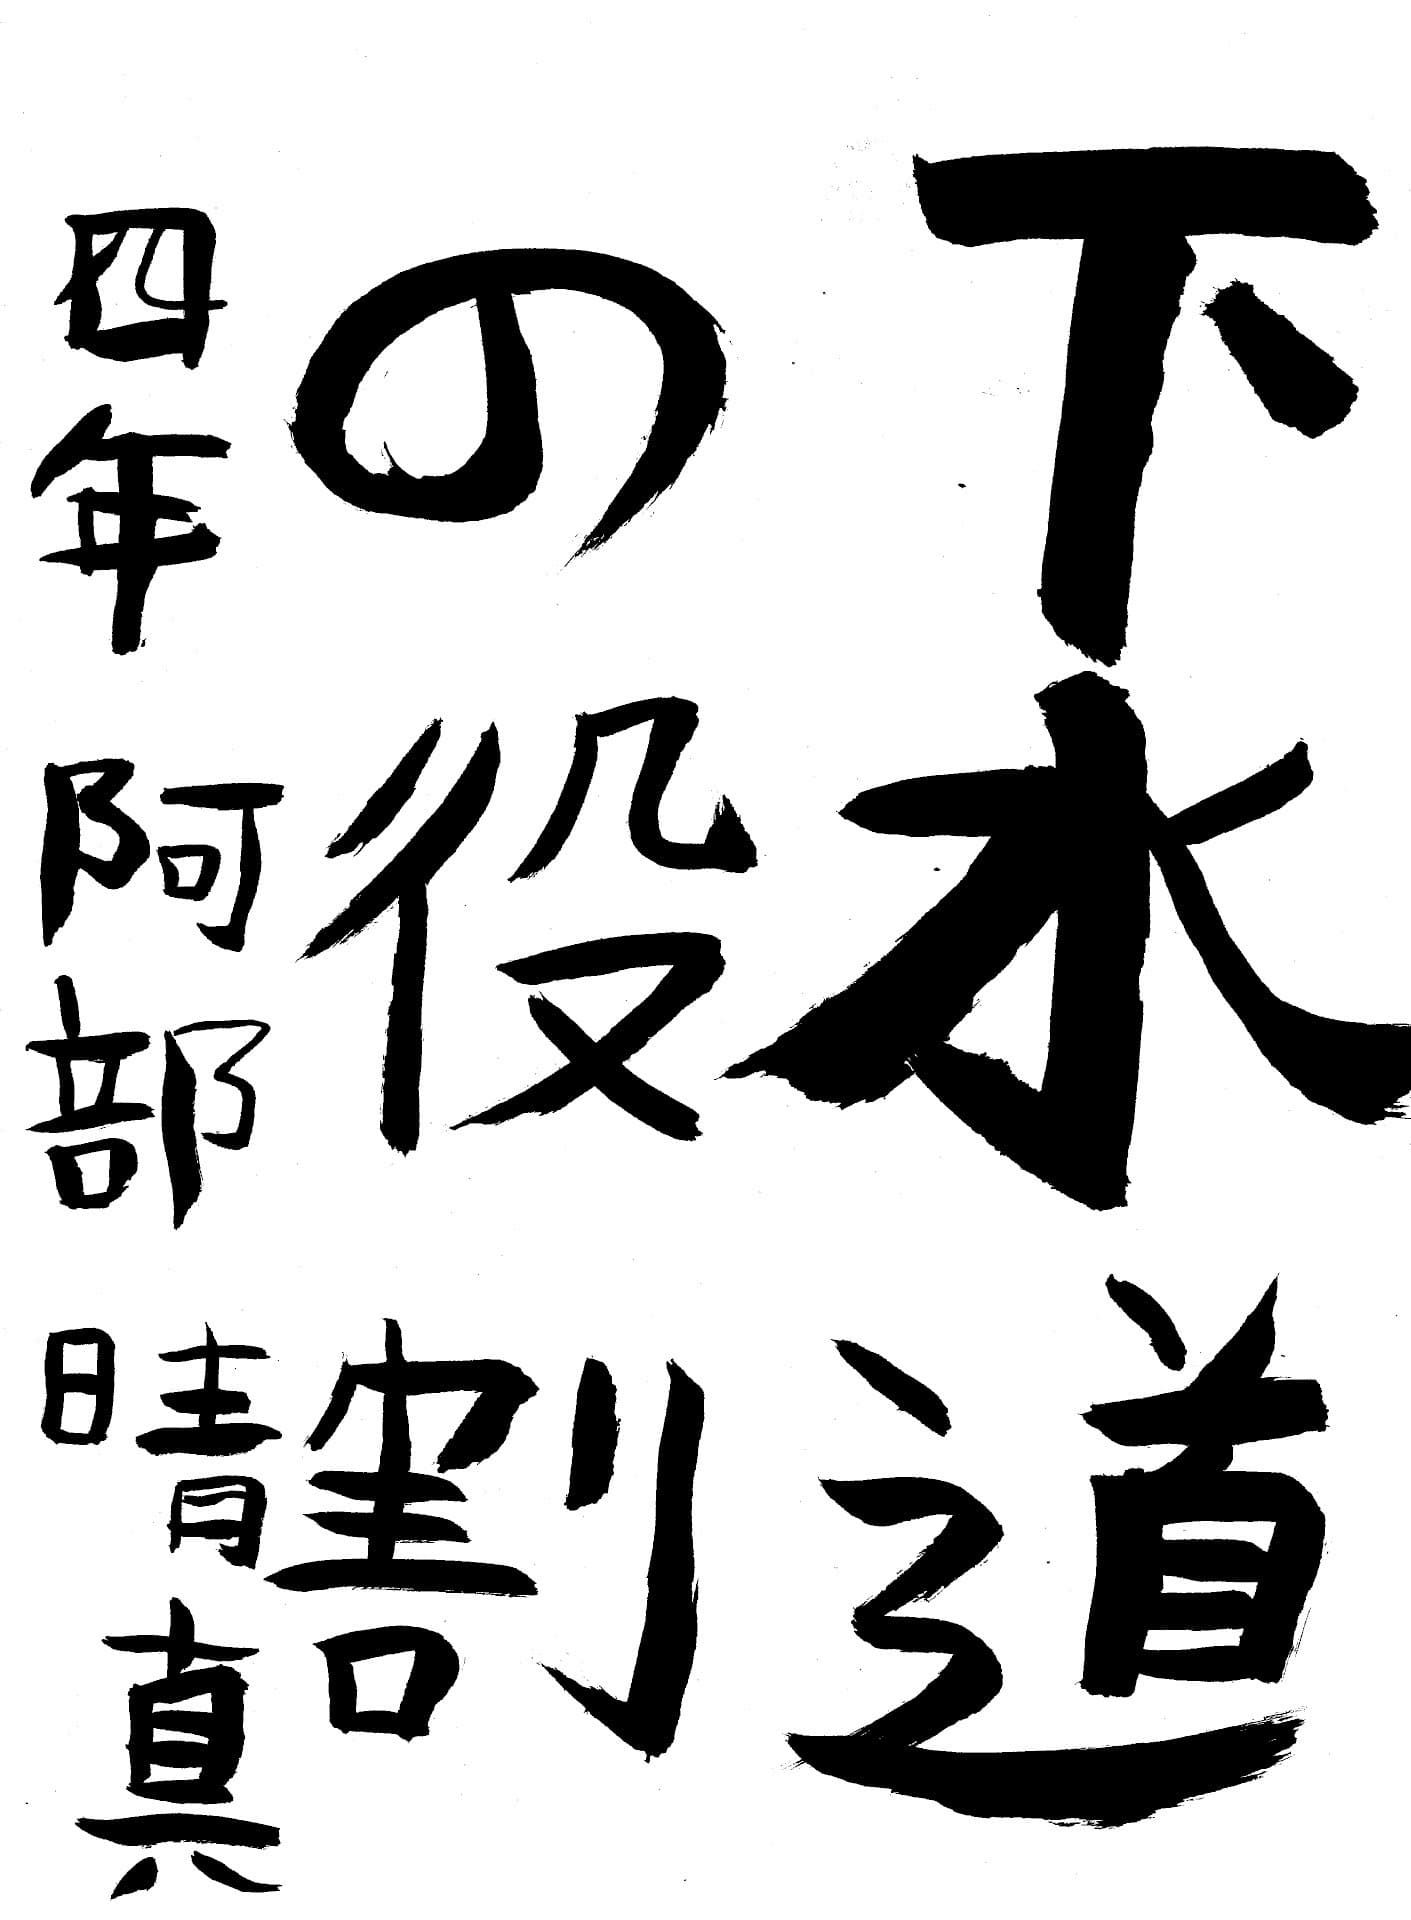 下水道
の役割
四年 阿部 晴真